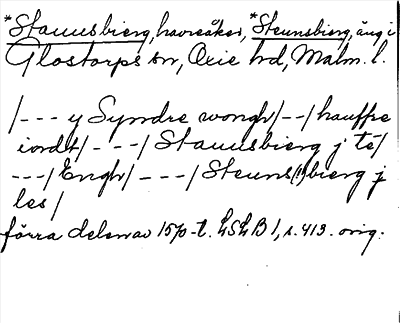 *Stauusbierg, havreåker, *Steunsbierg, äng i
Glostorps sn, Oxie hd, Malm. l.
/--- y Syndre wongh/--/hauffre
iordt/---/Stauusbierg j te/
---/Engh/---/Steuns(!)bierg j
les/
förra delen av 1570-t. LSLB 1, s. 413. orig.